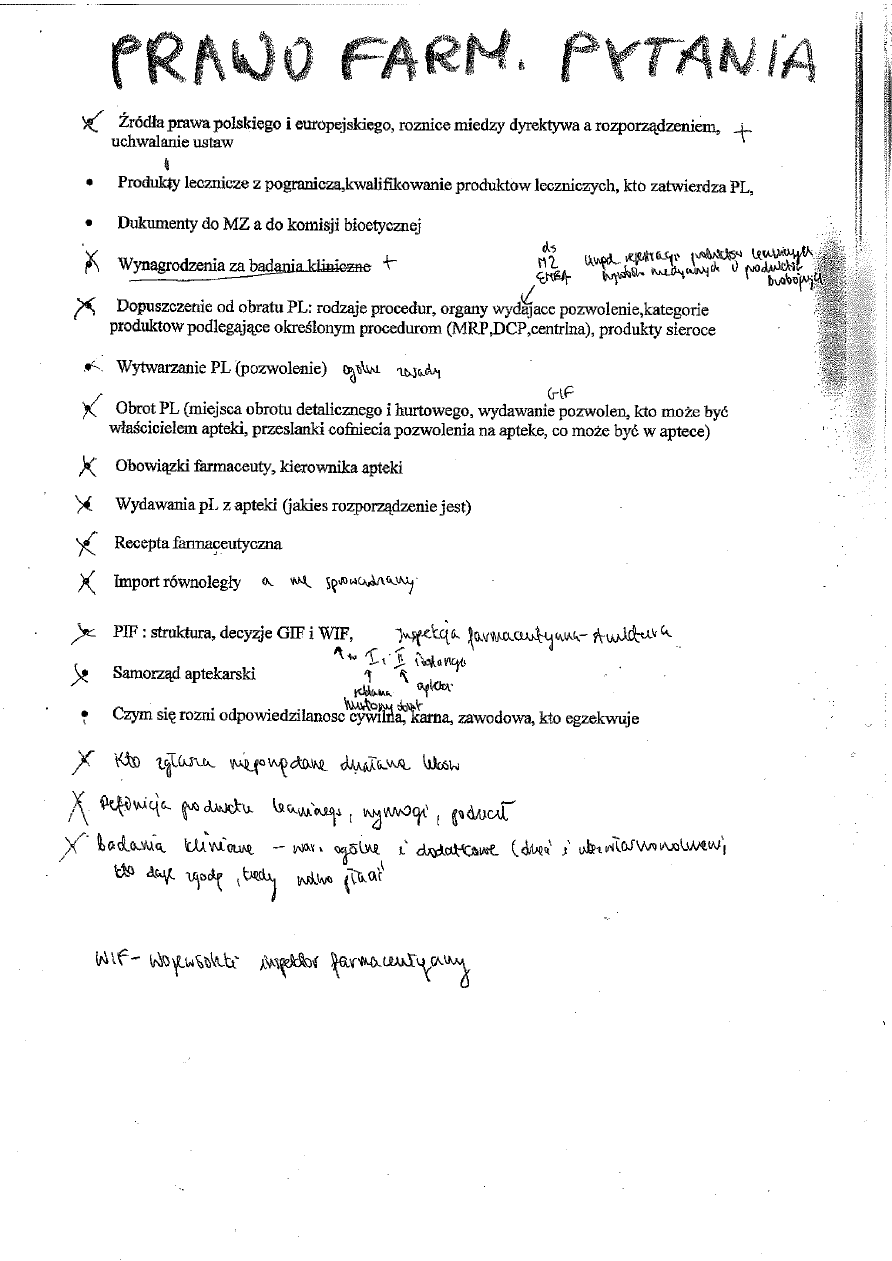 PRAWO FARM. PYTANIA
Źródła prawa polskiego i europejskiego, roznice miedzy dyrektywa a rozporządzeniem, +
uchwalanie ustaw
• Produkty lecznicze z pogranicza,kwalifikowanie produktow leczniczych, kto zatwierdza PL,
• Dukumenty do MZ a do komisji bioetycznej
Wynagrodzenia za badania kliniczne +
ds
MZ
EMEA
Urząd rejestracji produktów leczniczych
medycznych i produktów
biobójczych
Dopuszczenie od obratu PL: rodzaje procedur, organy wydające pozwolenie,kategorie
produktow podlegające określonym procedurom (MRP,DCP,centrlna), produkty sieroce
Wytwarzanie PL (pozwolenie) ogólne zasady
GIF
Obrot PL (miejsca obrotu detalicznego i hurtowego, wydawanie pozwolen, kto może być
właścicielem apteki, przeslanki cofniecia pozwolenia na apteke, co może być w aptece)
Obowiązki farmaceuty, kierownika apteki
Wydawania pL z apteki (jakies rozporządzenie jest)
Recepta farmaceutyczna
Import równoległy a nie sprowadzany
PIF : struktura, decyzje GIF i WIF, Inspekcja farmaceutyczna - struktura
w I i II instancji
Samorząd aptekarski
reklama apteki
hurtowy
• Czym się rozni odpowiedzilanosc cywilna, karna, zawodowa, kto egzekwuje
Kto zgłasza niepożądane działanie leków
Definicja produktu leczniczego, wymogi, podział
Badania kliniczne - war. ogólne i dodatkowe (dzieci i ubezwłasnowolnieni,
kto daje zgodę, kiedy można płacić
WIF - Wojewódzki inspektor farmaceutyczny